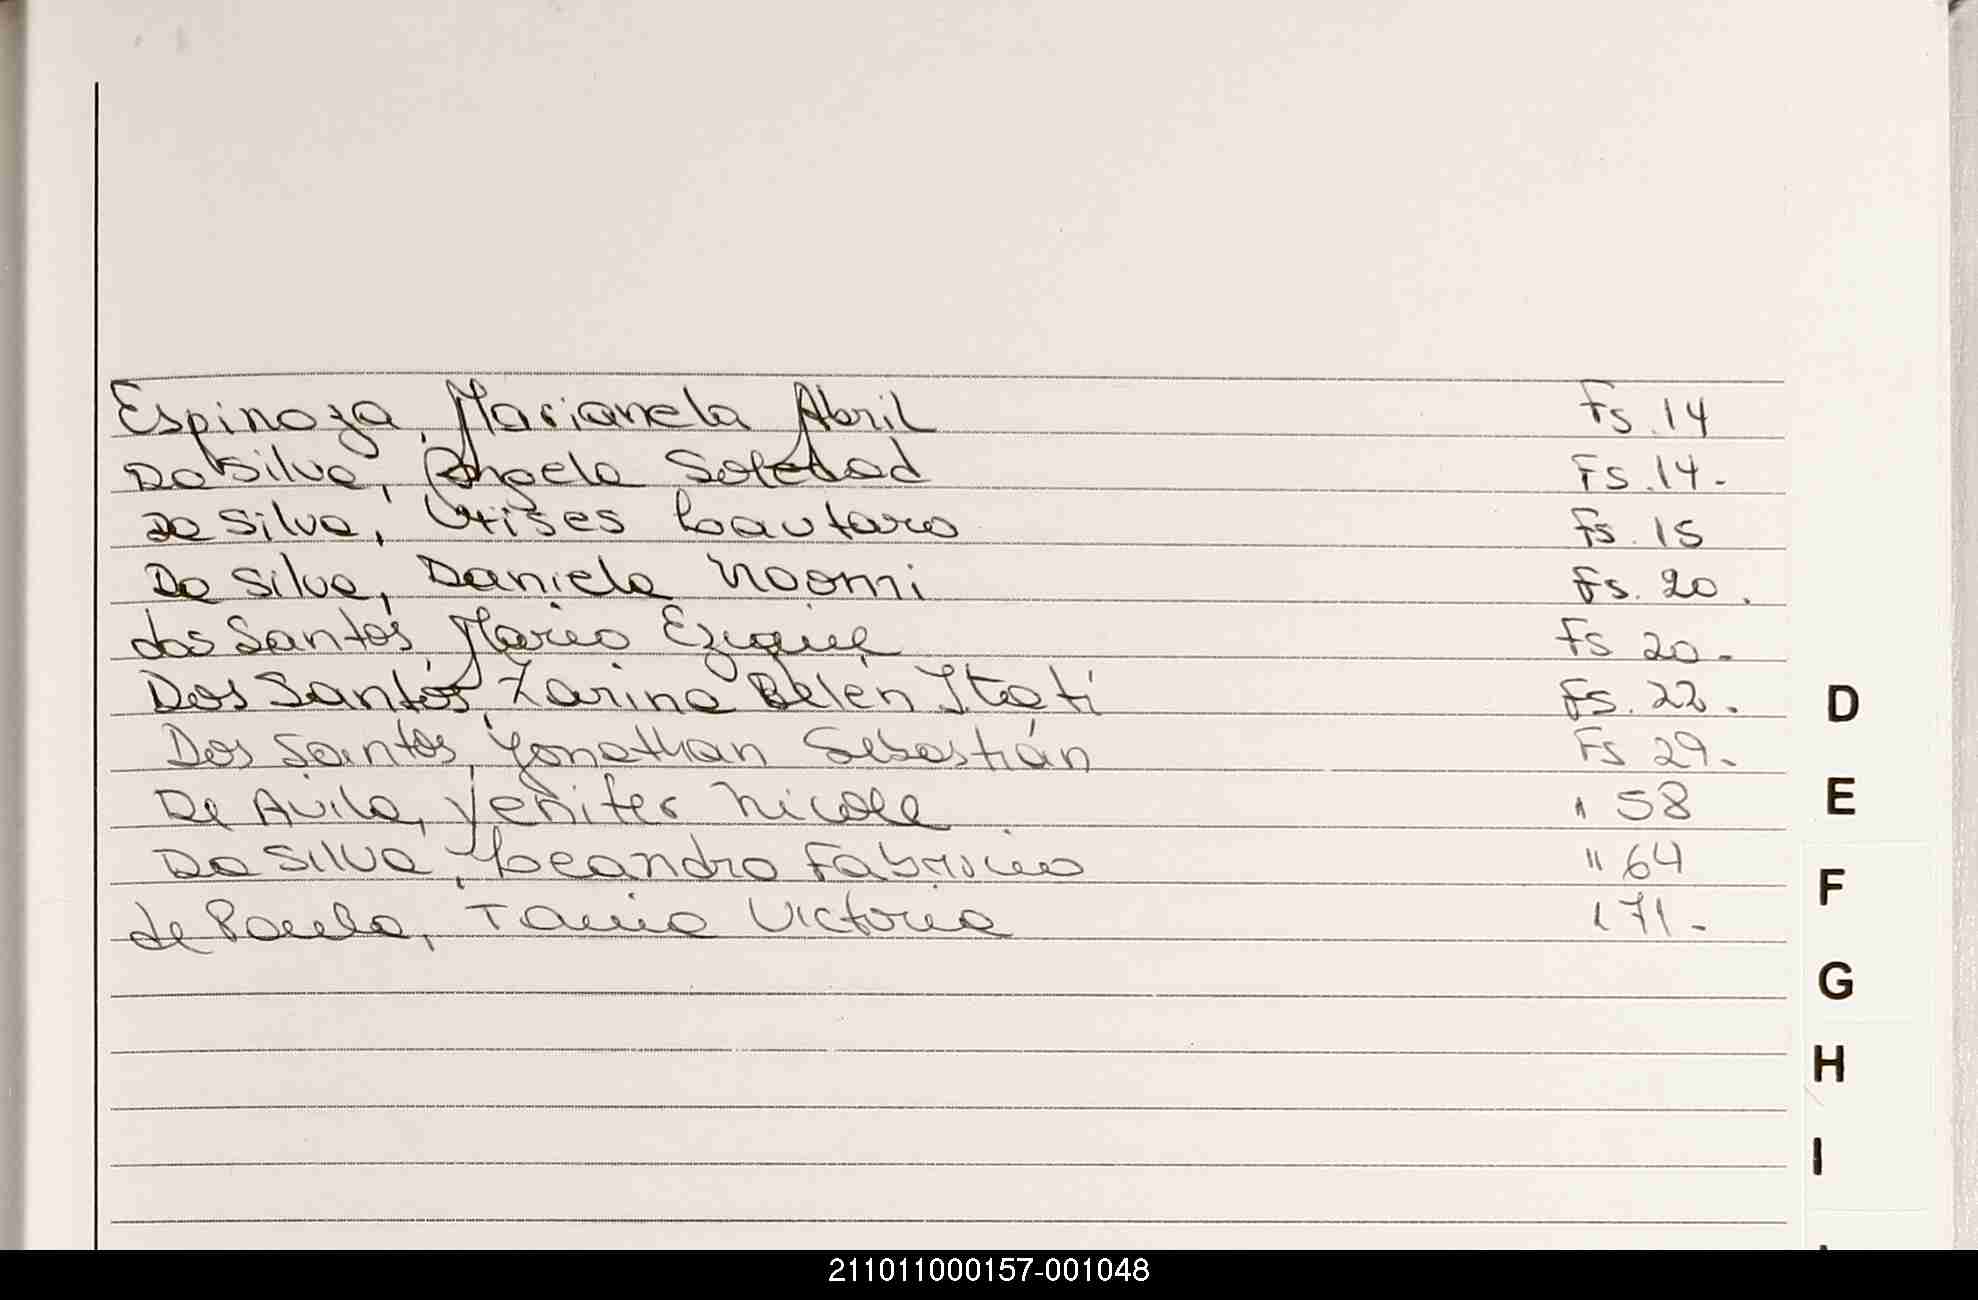 Espinoza, Marianela Abril Fs. 14
Da Silva, Angela Soledad Fs. 14.-
Da Silva, Lautaro Fs. 15
Da Silva, Daniela Noomi Fs. 20.
dos Santos, Mario Fs 20.-
Dos Santos, Zarina Belén Itati Fs. 22.-
Dos Santos, Yonathan Sebastián Fs 29.-
De Avila, Yenifer Nicole " 58
Da Silva, Leandro Fabricio " 64
de Paula, Tania Victoria " 71.-
D
E
F
G
H
I
211011000157-001048